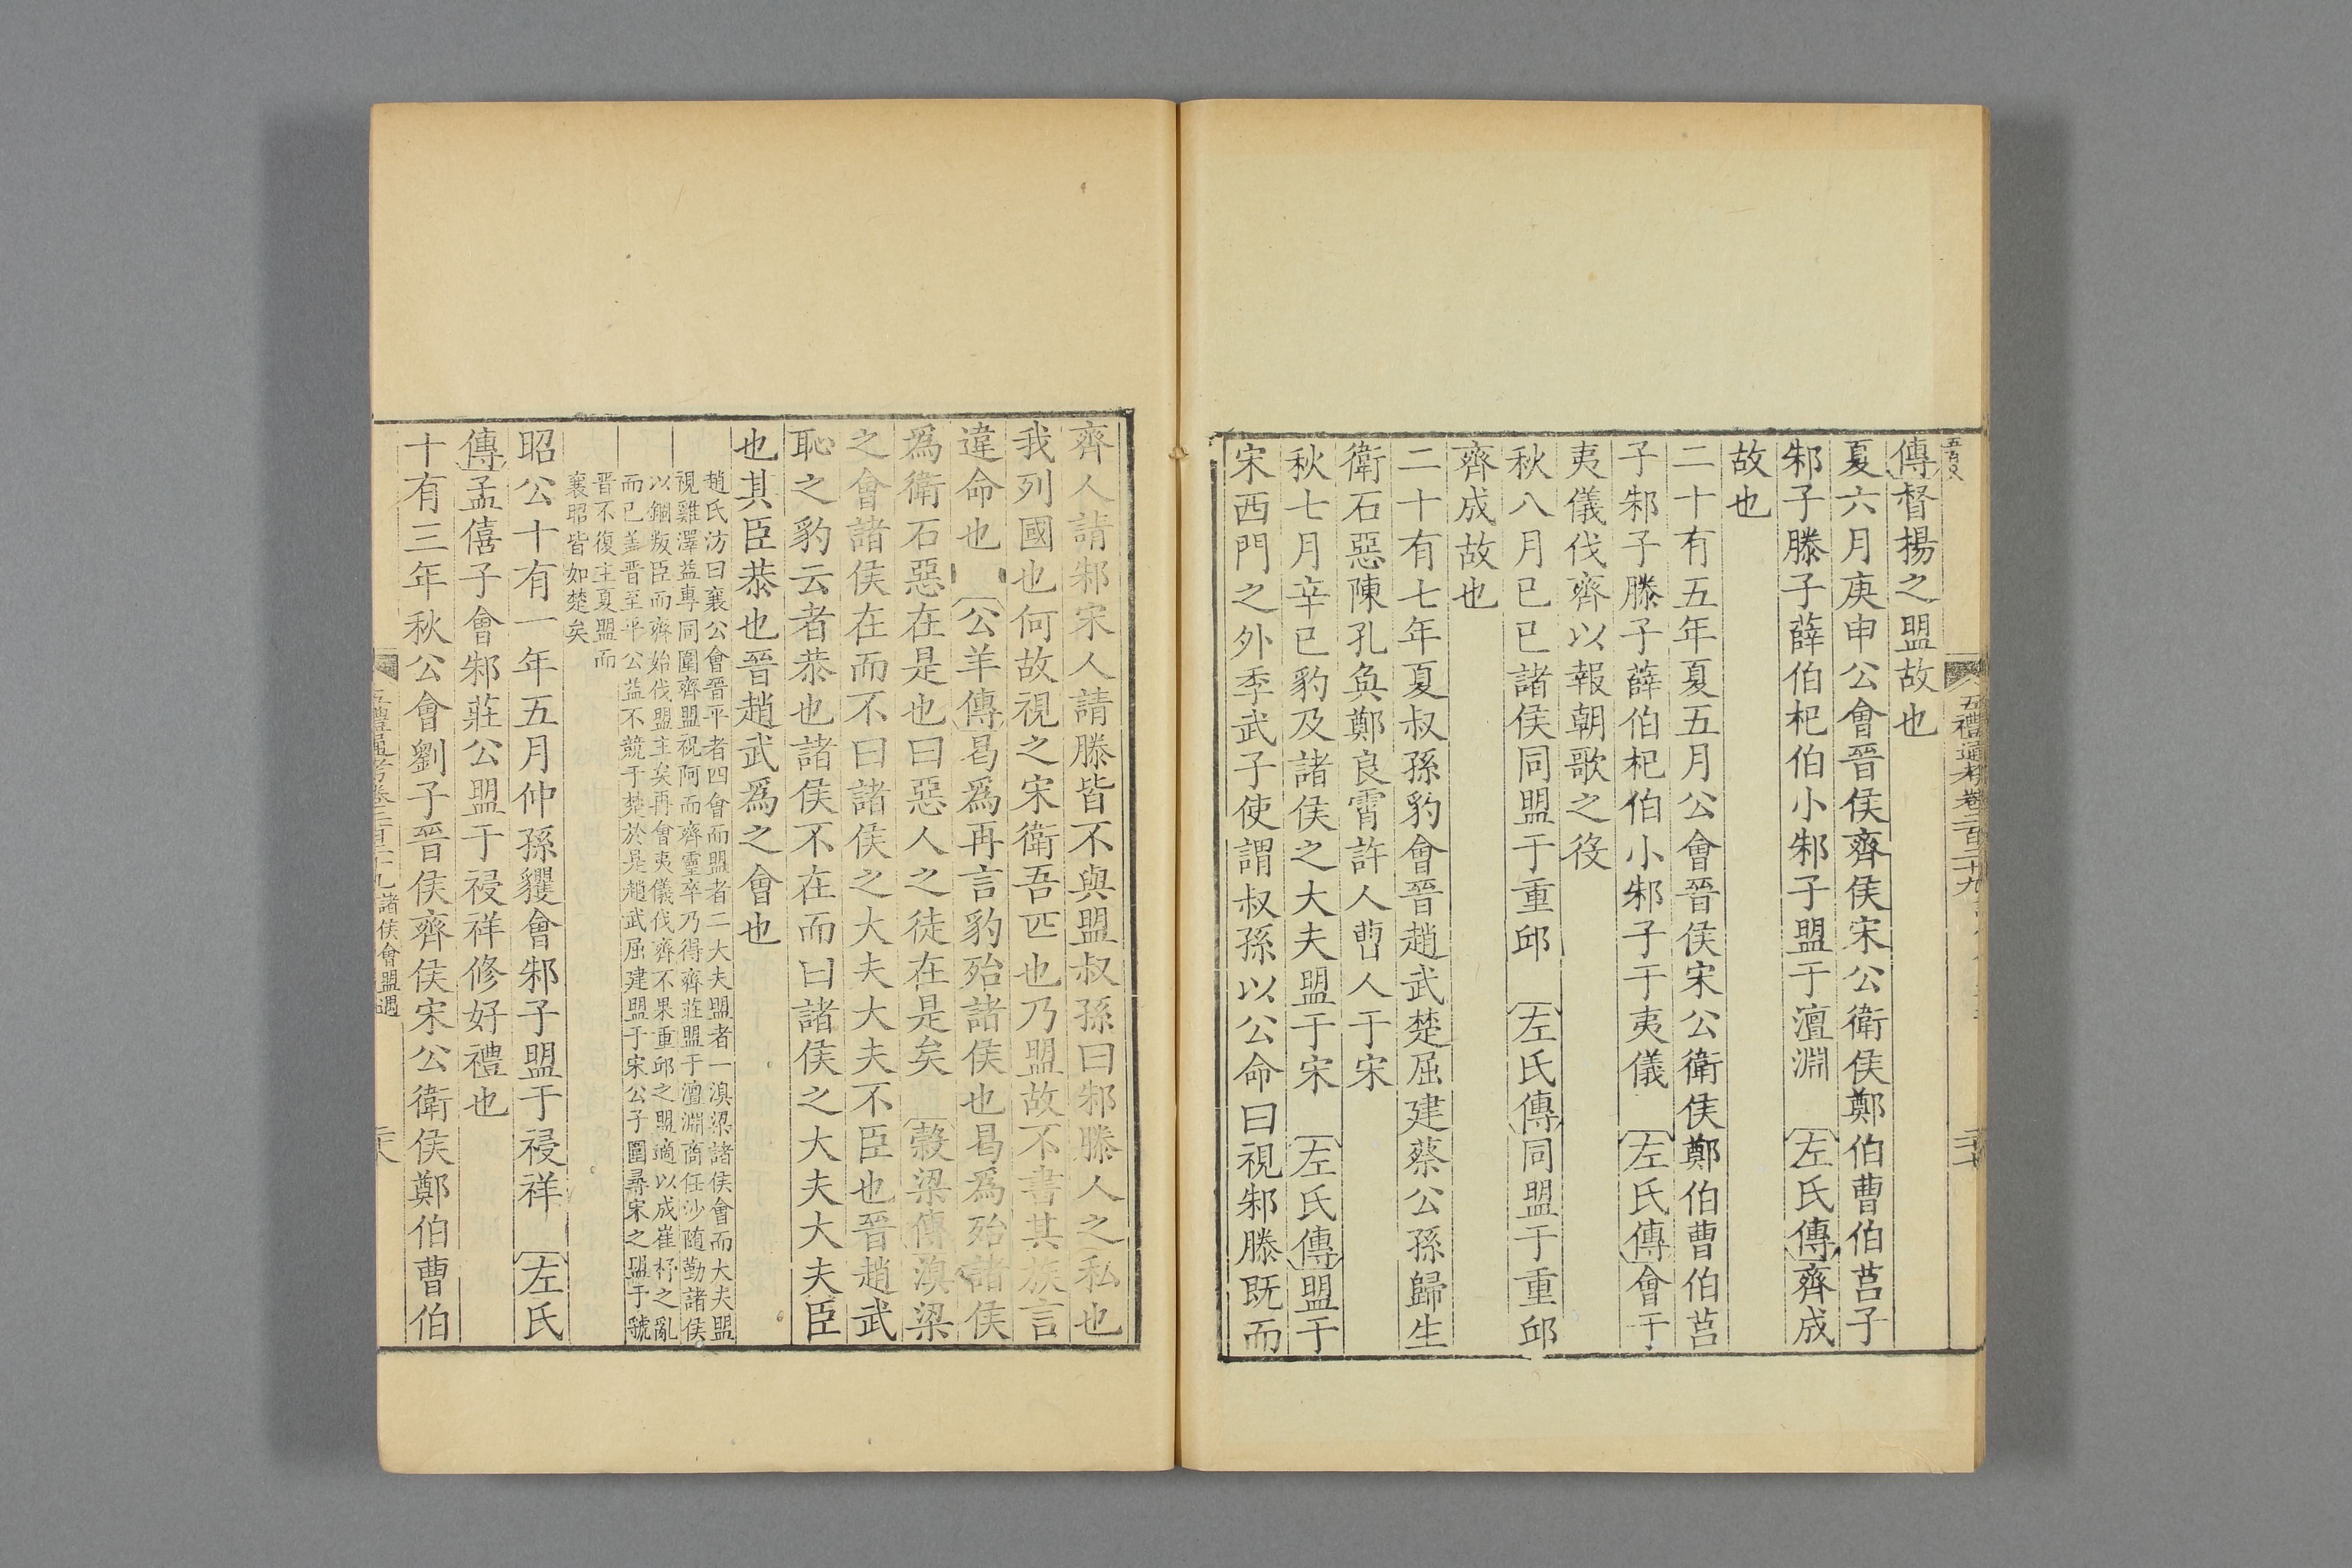 五百×
五禮通考卷二百二十九
二十
傳督揚之盟故也
夏六月庚申公會晉侯齊侯宋公衛侯鄭伯曹伯莒子
邾子滕子薛伯杞伯小邾子盟于澶淵 左氏傳齊成
故也
二十有五年夏五月公會晉侯宋公衛侯鄭伯曹伯莒
子邾子滕子薛伯杞伯小邾子于夷儀 左氏傳會于
夷儀伐齊以報朝歌之役
秋八月己巳諸侯同盟于重邱 左氏傳同盟于重邱
齊成故也
二十有七年夏叔孫豹會晉趙武楚屈建蔡公孫歸生
衛石惡陳孔奐鄭良霄許人曹人于宋
秋七月辛巳豹及諸侯之大夫盟于宋 左氏傳盟于
宋西門之外季武子使謂叔孫以公命曰視邾滕既而
齊人請邾宋人請滕皆不與盟叔孫曰邾滕人之私也
我列國也何故視之宋衛吾匹也乃盟故不書其族言
違命也 公羊傳曷爲再言豹殆諸侯也曷爲殆諸侯
爲衛石惡在是也曰惡人之徒在是矣 穀梁傳溴梁
之會諸侯在而不曰諸侯之大夫大夫不臣也晉趙武
恥之豹云者恭也諸侯不在而曰諸侯之大夫大夫臣
也其臣恭也晉趙武爲之會也
趙氏汸曰襄公會晉平者四會而盟者二大夫盟者一溴梁諸侯會而大夫盟
視雞澤益專同圍齊盟視阿而齊靈卒乃得齊莊盟于澶淵商任沙隨勤諸侯
以錮叛臣而齊始伐盟主矣再會夷儀伐齊不果重邱之盟適以成崔杼之亂
而已蓋晉至平公益不競于楚於是趙武屈建盟于宋公子圍尋宋之盟于虢
晉不復主夏盟而
襄昭皆如楚矣
昭公十有一年五月仲孫貜會邾子盟于祲祥 左氏
傳孟僖子會邾莊公盟于祲祥修好禮也
十有三年秋公會劉子晉侯齊侯宋公衛侯鄭伯曹伯
五禮通考卷二百二十九諸侯會盟遇